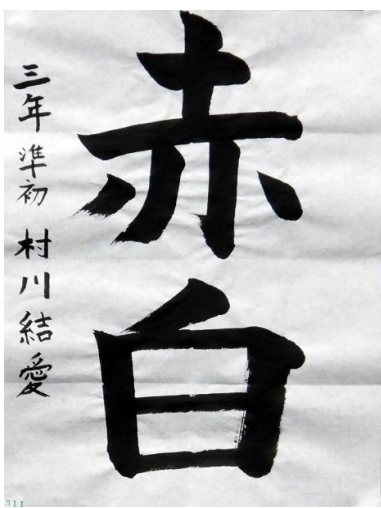 赤白
三年 準初 村川結愛
311